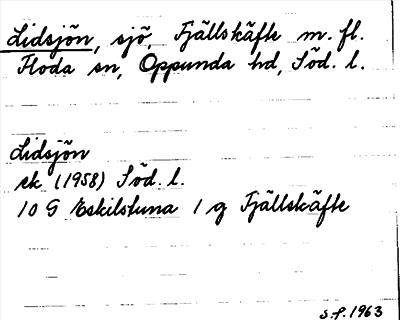 Lidsjön, sjö, Fjällskäfte m. fl.
Floda sn, Oppunda hd, Söd. l.
Lidsjön
ek (1958) Söd. l.
10 G Eskilstuna 1 g Fjällskäfte
S.P. 1963